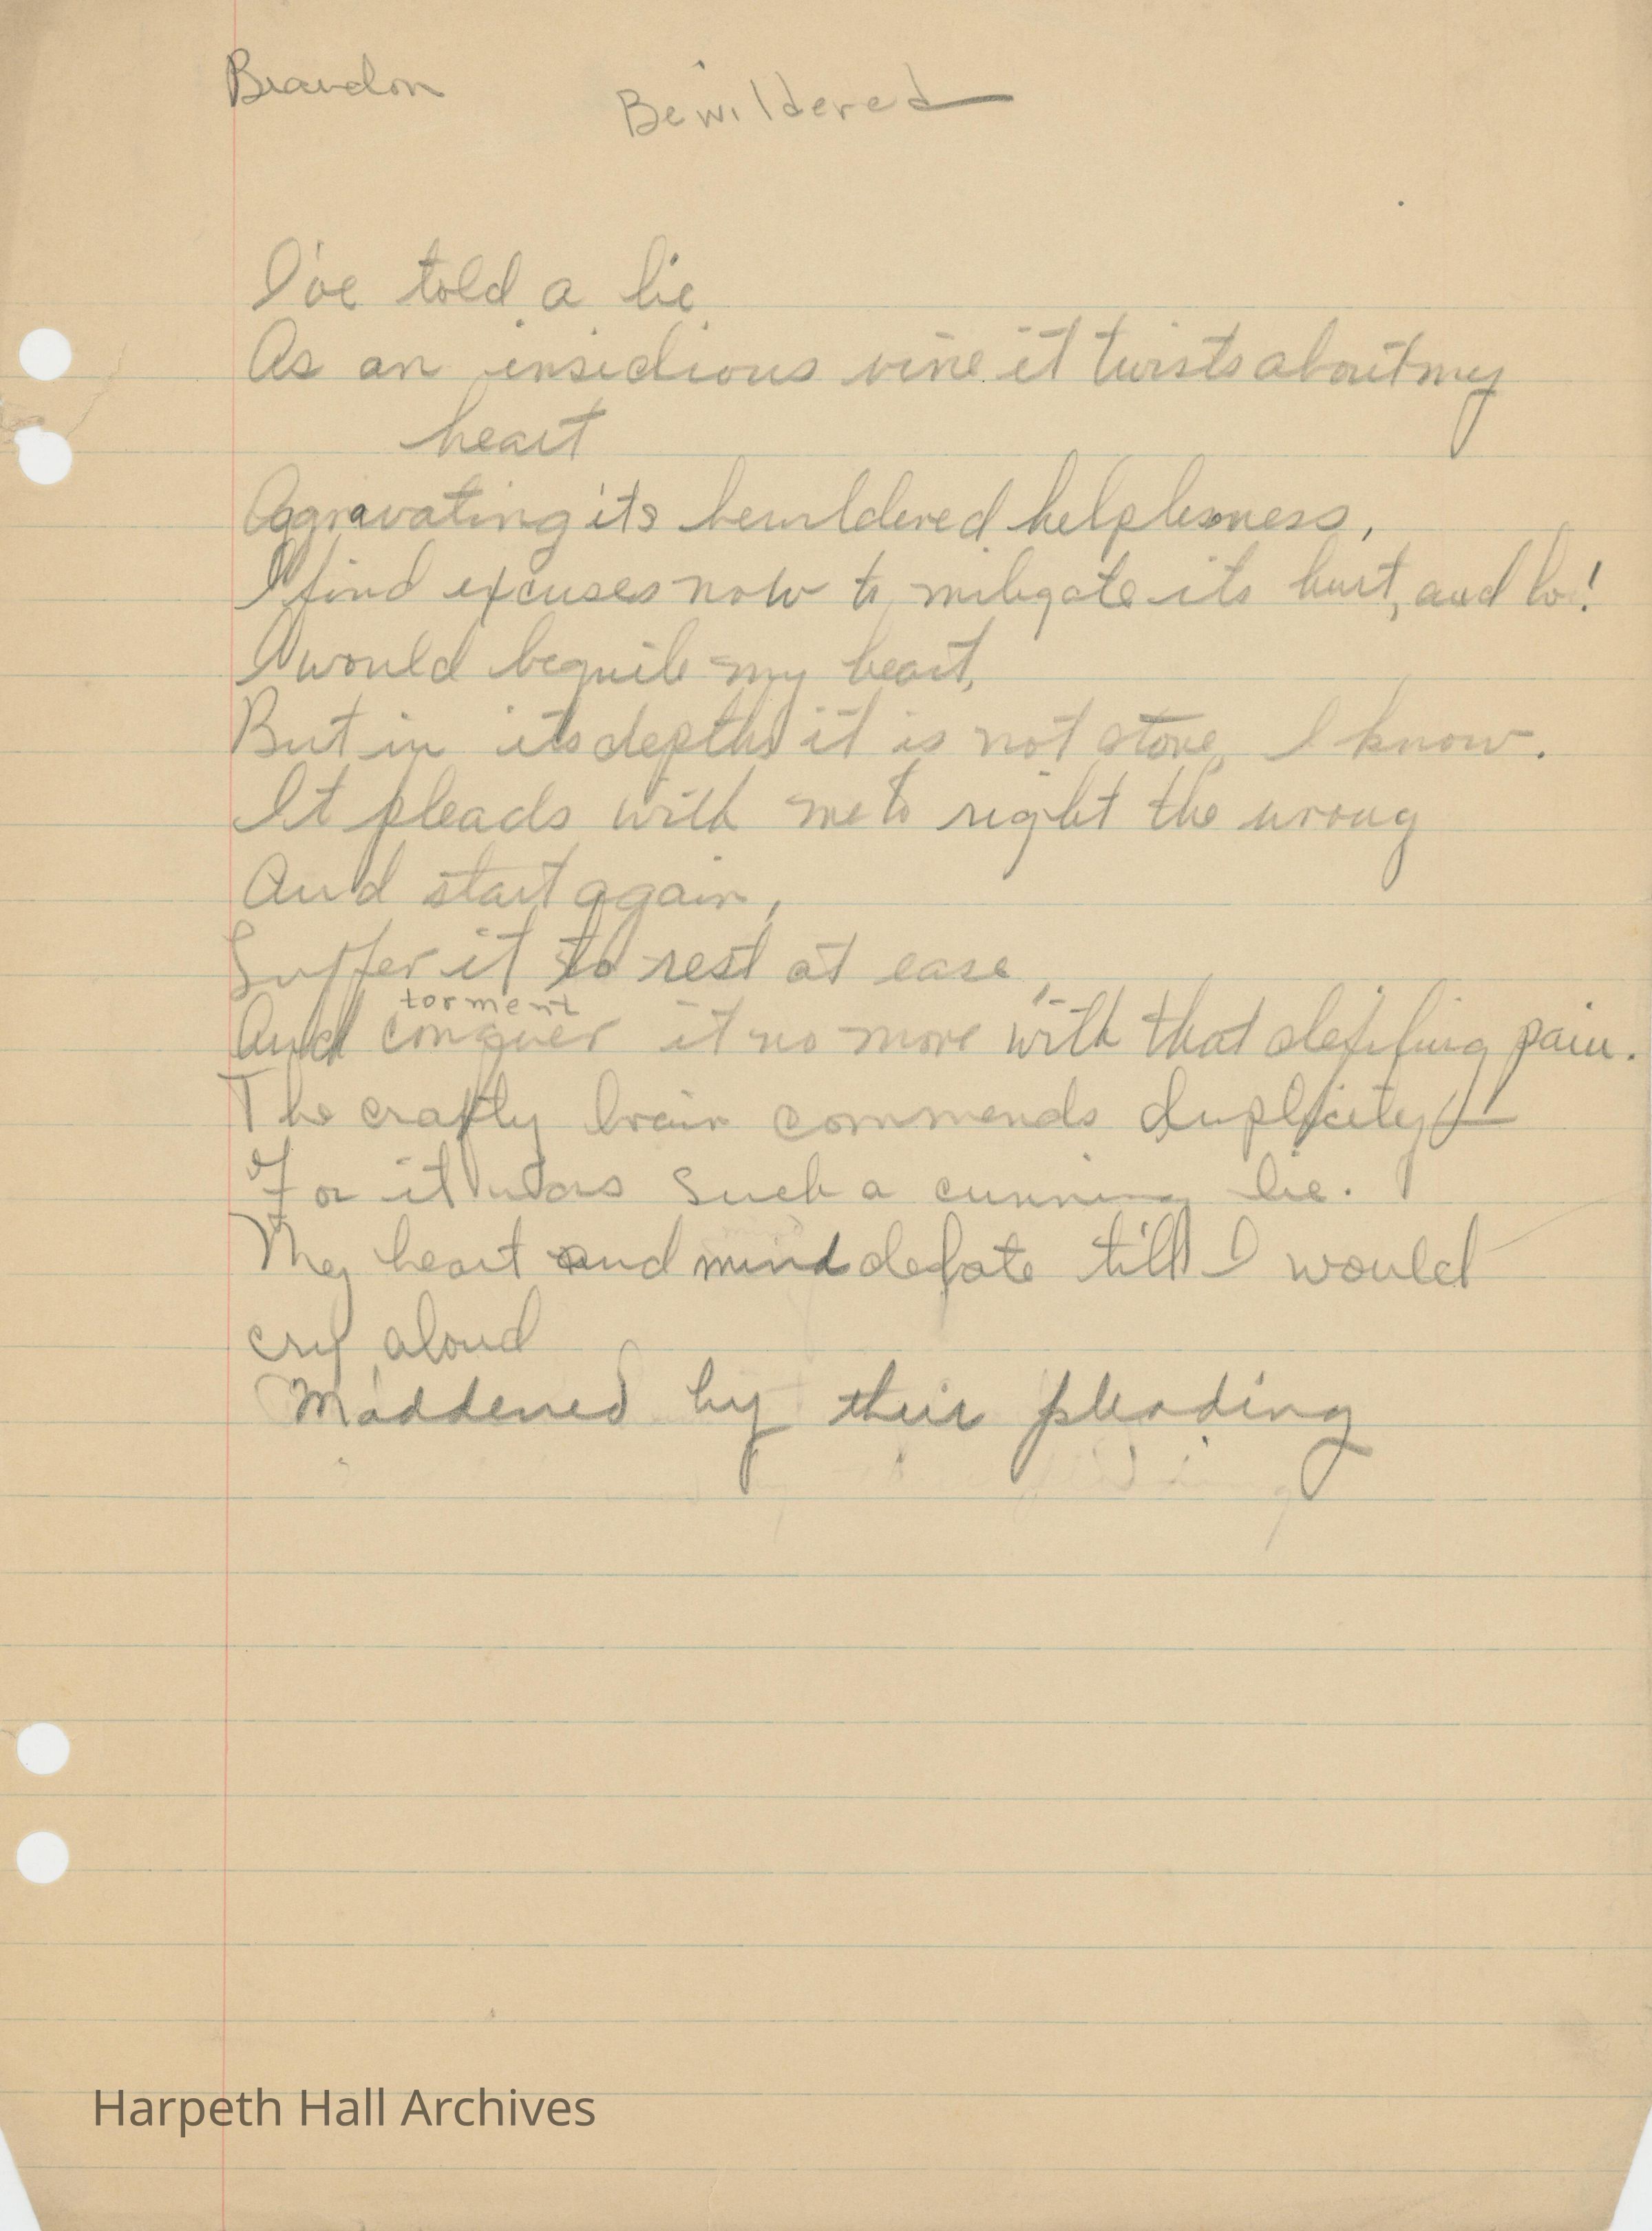 Brandon
Bewildered
I've told a lie
As an insidious vine it twists about my
heart
Aggravating its bewildered helplessness,
I find excuses now to mitigate its hurt, and lo!
I would beguile my heart,
But in its depths it is not stone, I know.
It pleads with me to right the wrong
And start again,
Suffer it to rest at ease,
torment
And conquer it no more with that defiling pain.
The crafty brain commends duplicity—
For it was such a cunning lie.
My heart and mind debate till I would
cry aloud
Maddened by their pleading
Harpeth Hall Archives